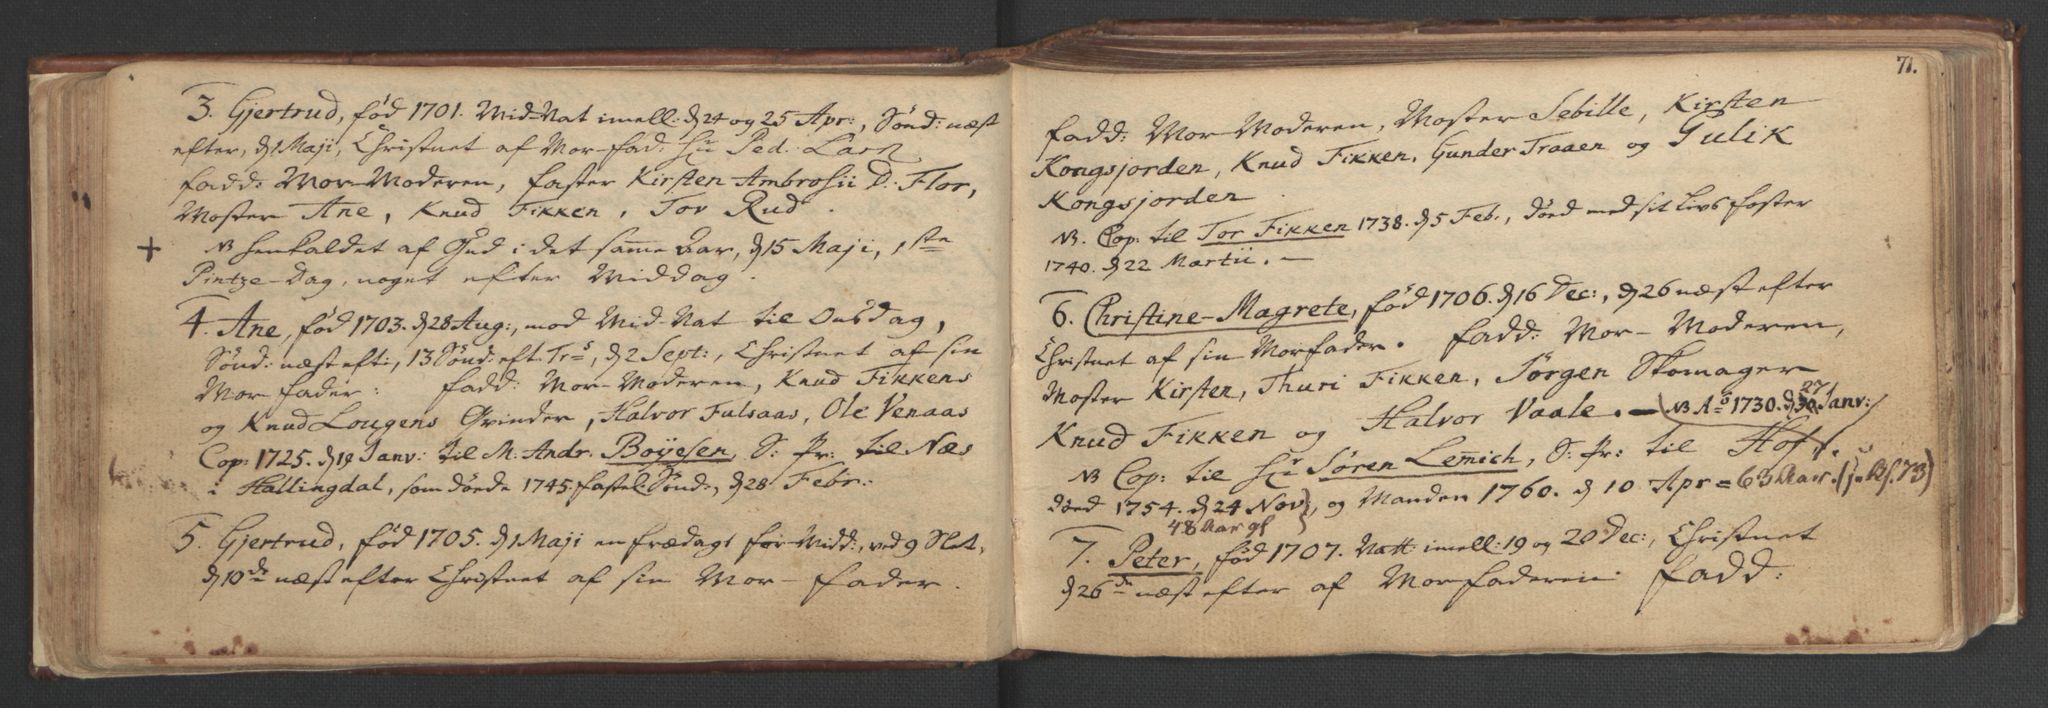 3. Gjertrud, fød 1701. Mid-Nat imell: d 24 og 25 Apr:, Sønd: næst
efter, d 1 Maji, Christnet af Mor-fad. Hr Ped. Larn
fadd: Mor-Moderen, faster Kirsten Ambrosii D: Flor,
Moster Ane, Knud Fikken, Tov Rud.
+ NB henkaldet af Gud i det samme Aar, d 15 Maji, 1ste
Pintze-Dag, noget efter Middag.
4. Ane, fød 1703. d 28 Aug:, mod Mid-Nat til Onsdag,
Sønd: næst eft:, 13 Sønd: eft: Trs, d 2 Sept:, Christnet af sin
Mor fader: fadd: Mor-Moderen, Knud Fikkens
og Knud Lougens Qvinder, Halvor Fulsaas, Ole Venaas
Cop: 1725. d 19 Janv: til M. Andr. Boyesen, S: Pr: til Næs
i Hallingdal, som døde 1745. fastel: Sønd:, d 28 Febr:
5. Gjertrud, fød 1705. d 1 Maji en fredags for-Midd:, ved 9 Slet,
d 10de næst efter Christnet af sin Mor-fader.
71.
fadd: Mor-Moderen, Moster Sebille, Kirsten
Kongsjorden, Knud Fikken, Gunder Traaen og Gulik
Kongsjorden
NB. Cop: til Tor Fikken 1738. d 5 Feb., død med sit Livs foster
1740. d 22 Martii. —
6. Christine-Magrete, fød 1706. d 16 Dec:, d 26 næst efter
Christnet af sin Morfader. fadd: Mor-Moderen,
Moster Kirsten, Thuri Fikken, Jørgen Skomager
Knud Fikken og Halvor Vaale. — (NB Ao 1730. d 30 27 Janv:)
NB Cop: til Hr Søren Lemich, S: Pr: til Hof.
død 1754. d 24 Nov:, og Manden 1760. d 10 Apr = 63 Aar.
48 Aar gl
7. Peter, fød 1707. Natt: imell: 19 og 20 Dec:, Christnet
d 26de næst efter af Morfaderen. fadd: